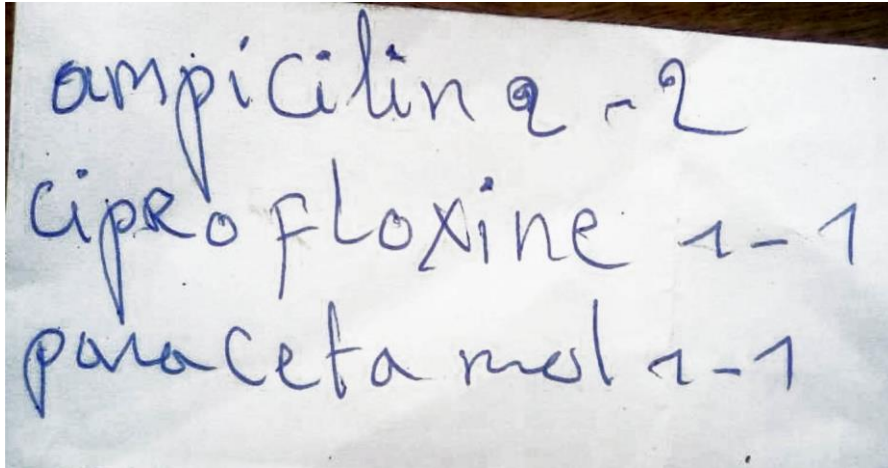 ampicilin 2-2
ciprofloxine 1-1
paracetamol 1-1